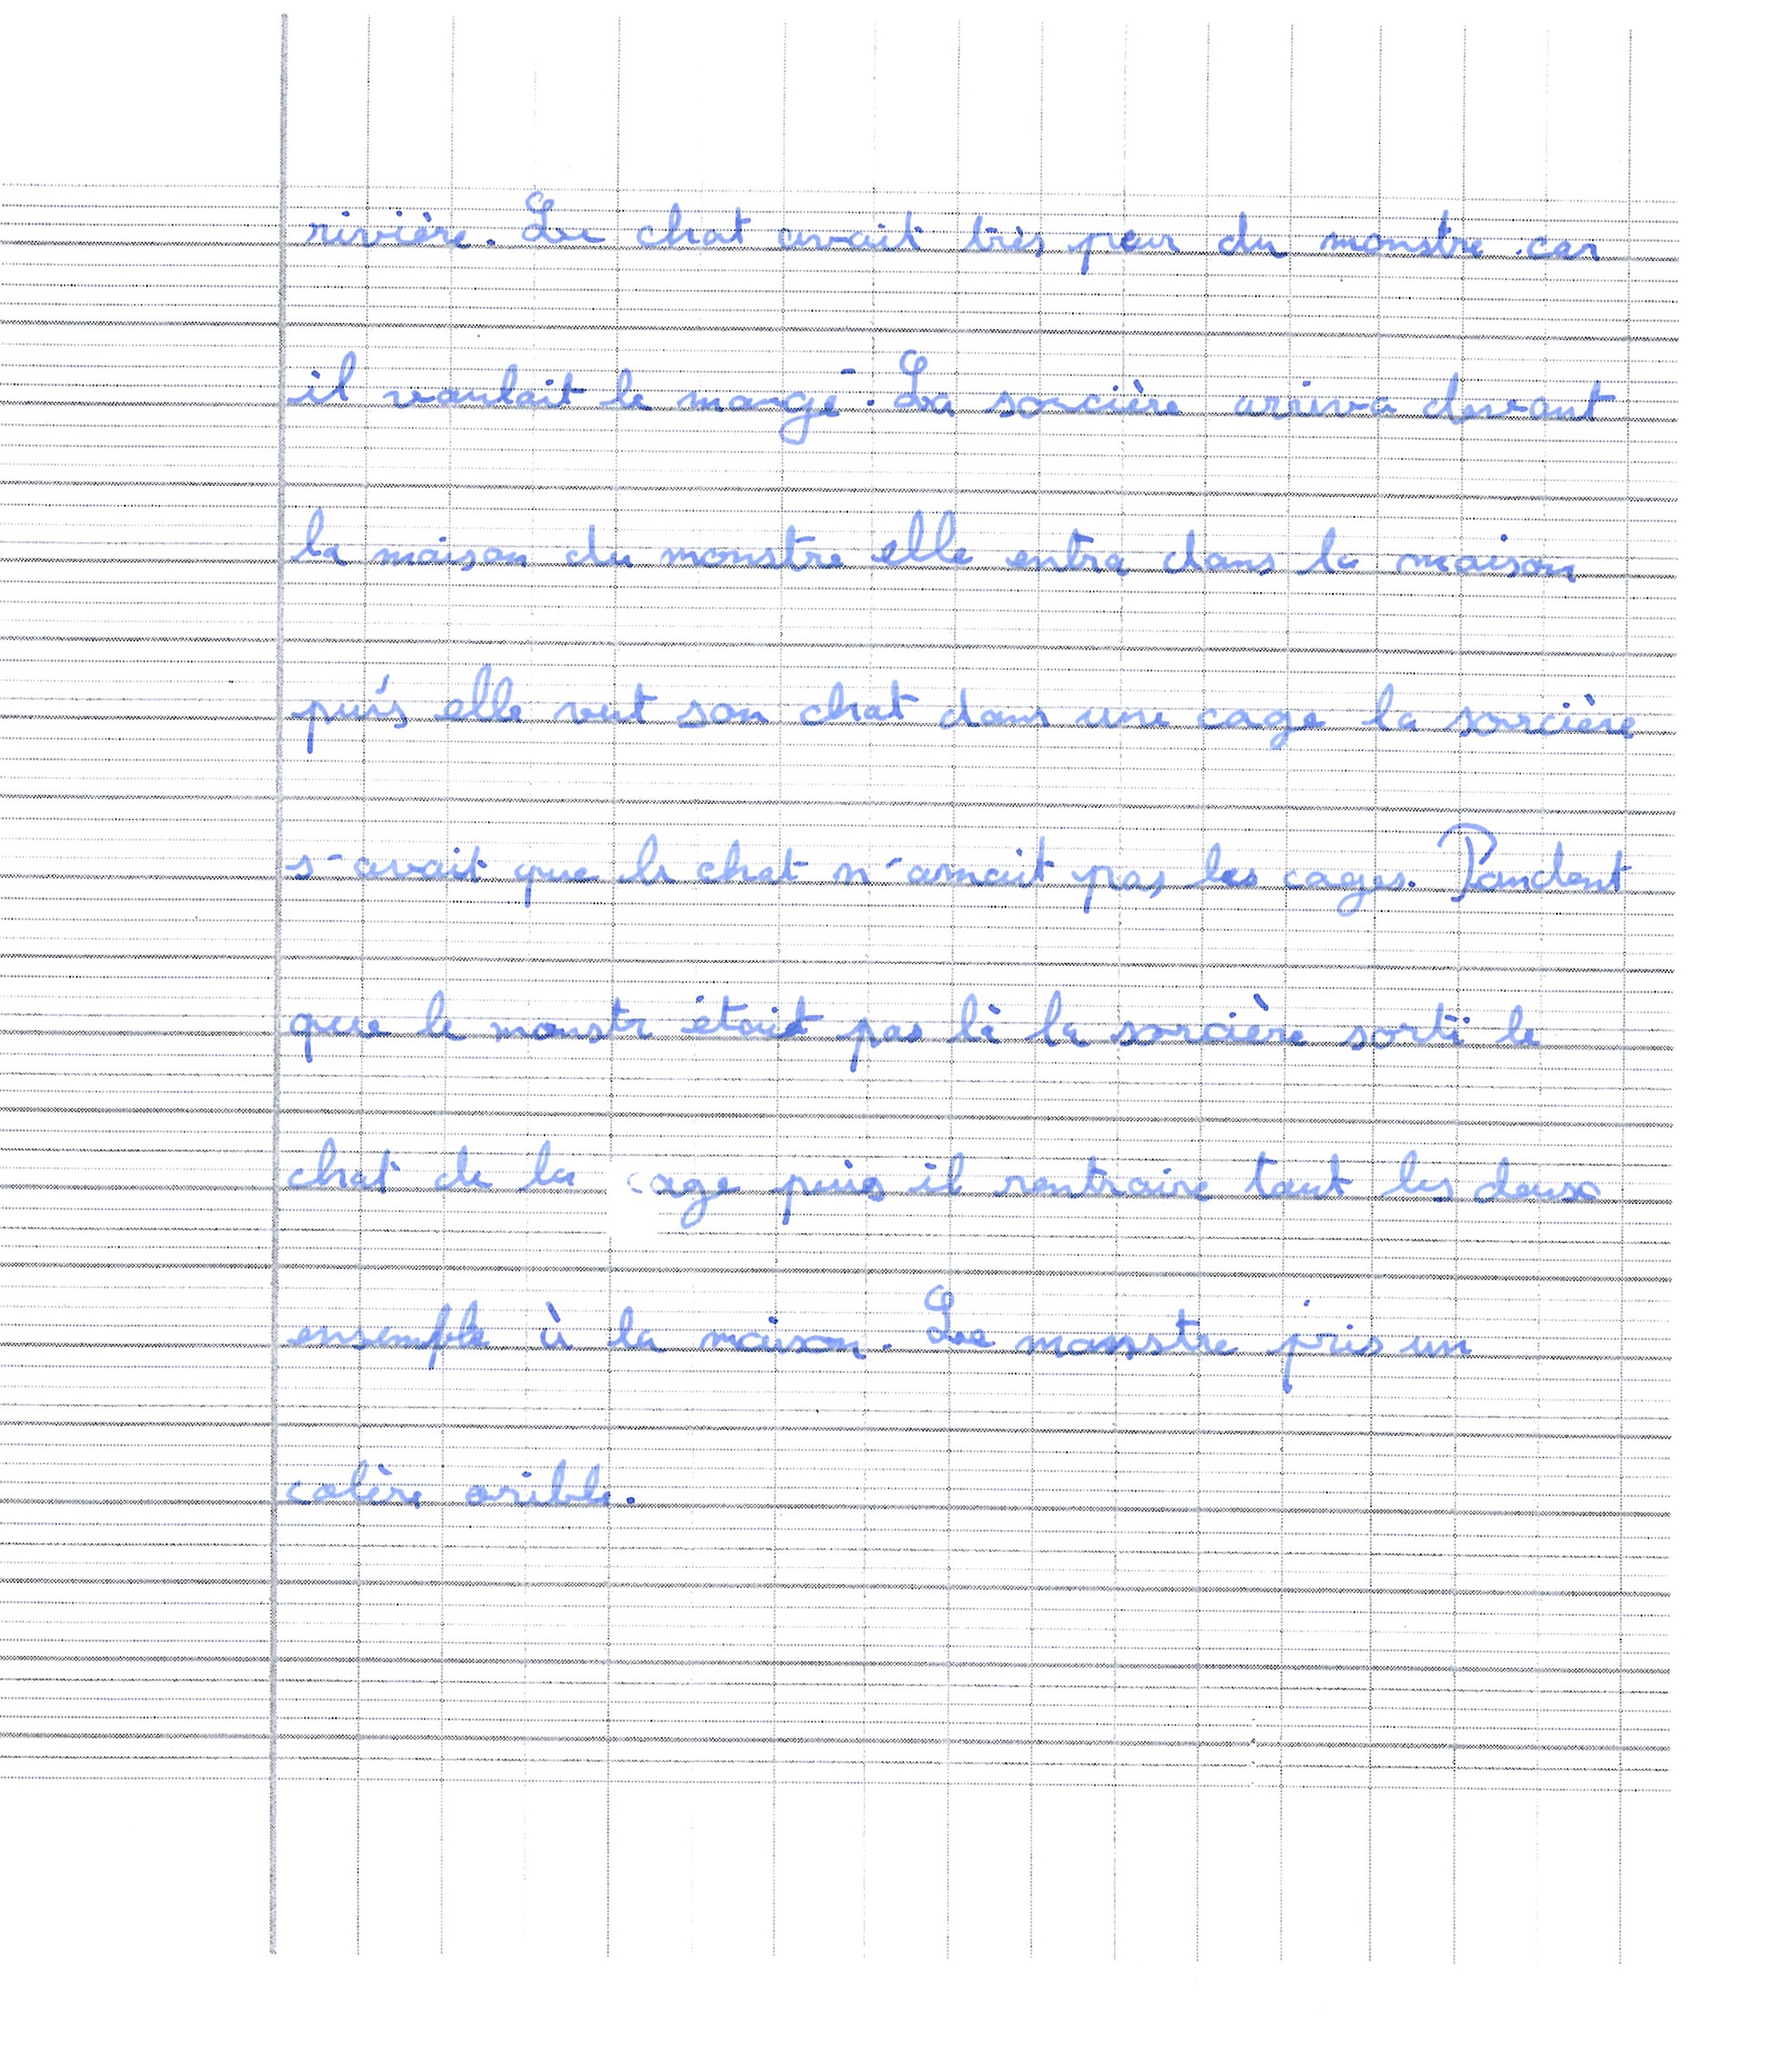 rivière. Le chat avait très peur du monstre car
il voulait le mangé. La sorcière arriva devant
la maison du monstre elle entra dans la maison
puis elle vut son chat dans une cage la sorcière
s'avait que le chat n'amait pas les cages. Pandent
que le monstr était pas là la sorcière sorti le
chat de la cage puis il rentraire tout les deux
ensemple à la maison. Le monstre pris un
colère orible.